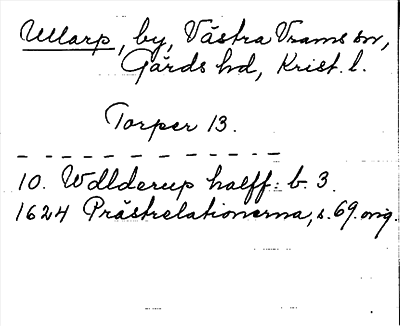 Ullarp, by, Västra Vrams sn,
Gärds hd, Krist. l.
Torper 13.
10. Wdlderup halff: b. 3.
1624 Prästrelationerna, s. 69. orig.